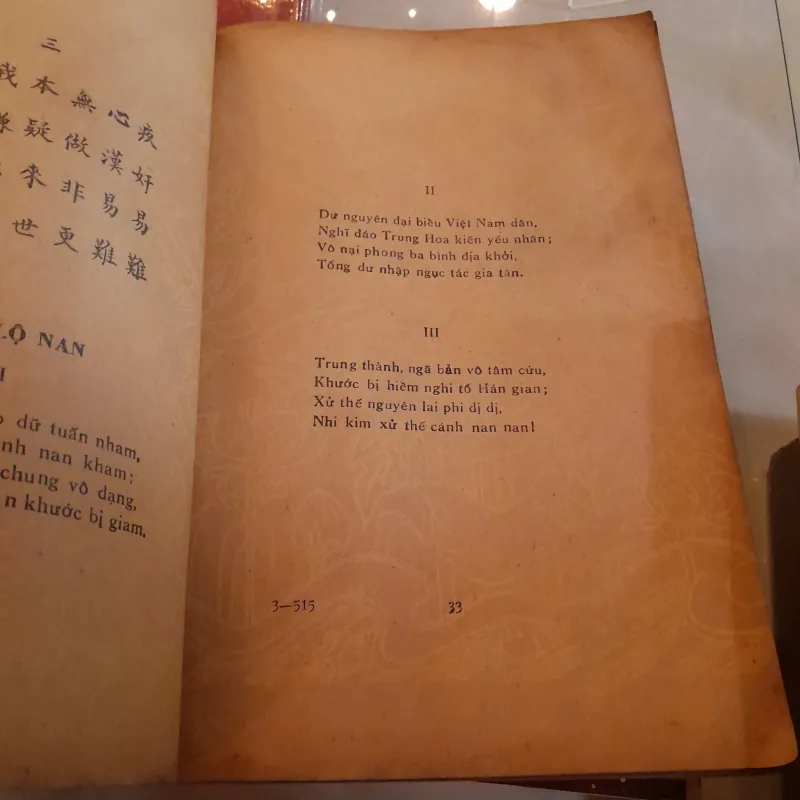 三
我本無心疚
嫌疑做漢奸
來非易易
世更難難
LỘ NAN
I
dữ tuấn nham,
nan kham;
chung vô dạng,
khước bị giam.
II
Dư nguyên đại biểu Việt Nam dân,
Nghĩ đáo Trung Hoa kiến yếu nhân;
Vô nại phong ba bình địa khởi,
Tống dư nhập ngục tác gia tân.
III
Trung thành, ngã bản vô tâm cứu,
Khước bị hiềm nghi tố Hán gian;
Xử thế nguyên lai phi dị dị,
Nhi kim xử thế cánh nan nan!
3—515
33